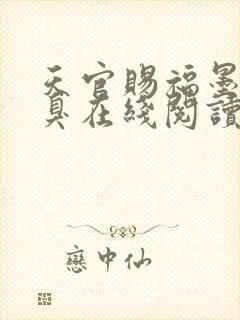 天官賜福墨
臭在綫閱讀
戀中仙